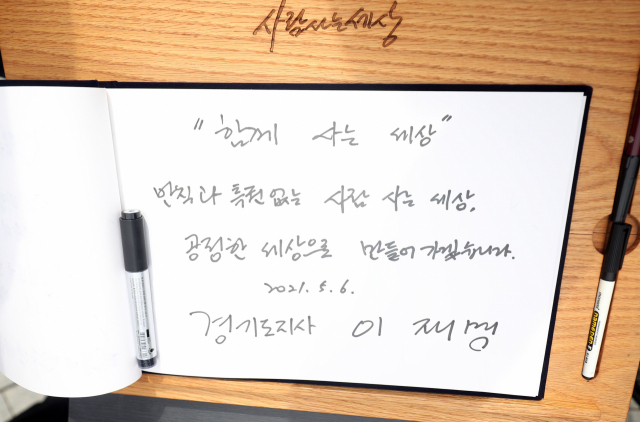 사람사는세상
"함께 사는 세상"
반칙과 특권없는 사람 사는 세상,
공정한 세상으로 만들어 가겠습니다.
2021. 5. 6.
경기도지사 이재명